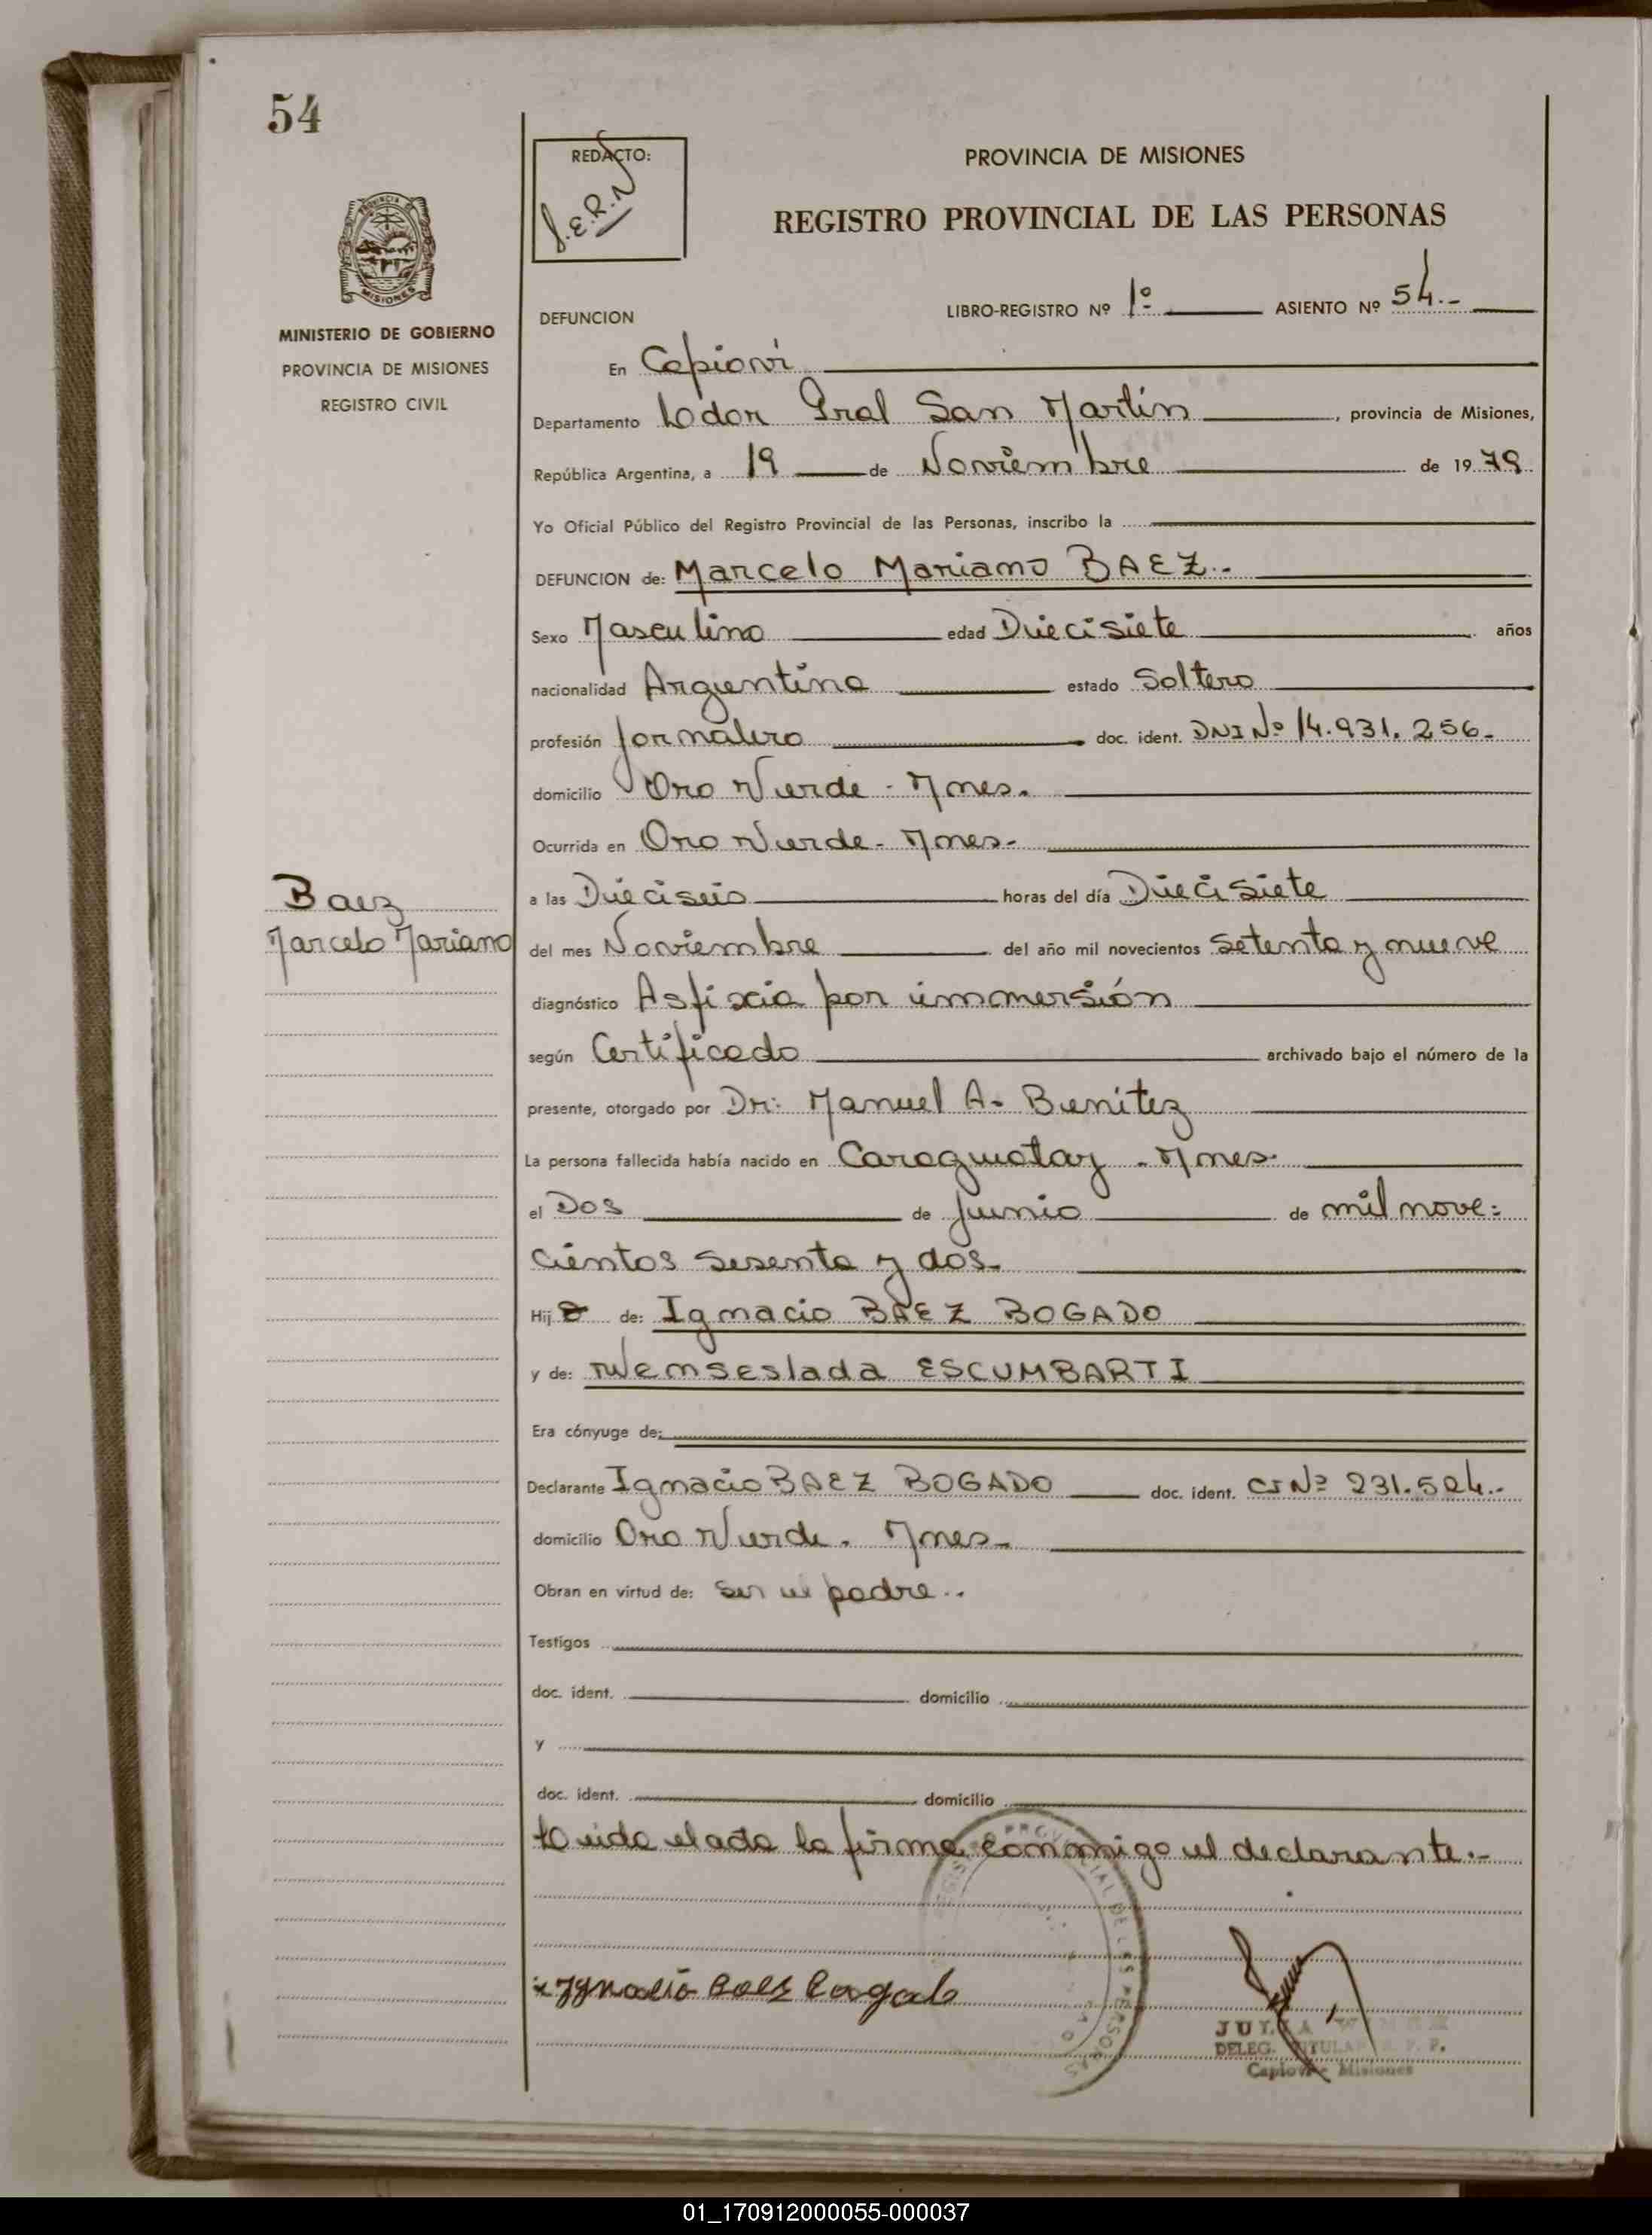 54
REDACTO:
J.E.R.N
PROVINCIA DE MISIONES
REGISTRO PROVINCIAL DE LAS PERSONAS
PROVINCIA DE
MISIONES
MINISTERIO DE GOBIERNO
PROVINCIA DE MISIONES
REGISTRO CIVIL
DEFUNCION LIBRO-REGISTRO Nº 1º ASIENTO Nº 54.-
En Capiovi
Departamento Ldor Gral San Martín, provincia de Misiones,
República Argentina, a 19 de Noviembre de 1979
Yo Oficial Público del Registro Provincial de las Personas, inscribo la
DEFUNCION de: Marcelo Mariano BAEZ.-
Sexo Masculino edad Diecisiete años
nacionalidad Argentina estado Soltero
profesión Jornalero doc. ident. DNI Nº 14.931.256-
domicilio Oro Verde - Mnes.
Ocurrida en Oro Verde - Mnes-
a las Dieciseis horas del día Diecisiete
del mes Noviembre del año mil novecientos Setenta y nueve
diagnóstico Asfixia por inmersión
según Certificado archivado bajo el número de la
presente, otorgado por Dr: Manuel A. Benitez
La persona fallecida había nacido en Caraguatay - Mnes-
el Dos de Junio de mil nove:
cientos sesenta y dos-
Hij o de: Ignacio BAEZ BOGADO
y de: Wenseslada ESCUMBARTI
Era cónyuge de:
Declarante Ignacio BAEZ BOGADO doc. ident. CI Nº 231.524.-
domicilio Oro Verde. Mnes-
Obran en virtud de: Ser el padre..
Testigos
doc. ident. domicilio
y
doc. ident. domicilio
Leida el acta la firma conmigo el declarante.-
Baez
Marcelo Mariano
Ygnacio Baez Bogado
REGISTRO PROVINCIAL DE LAS PERSONAS
DELEG. TITULAR R. P. P.
Capiovi - Misiones
01_170912000055-000037